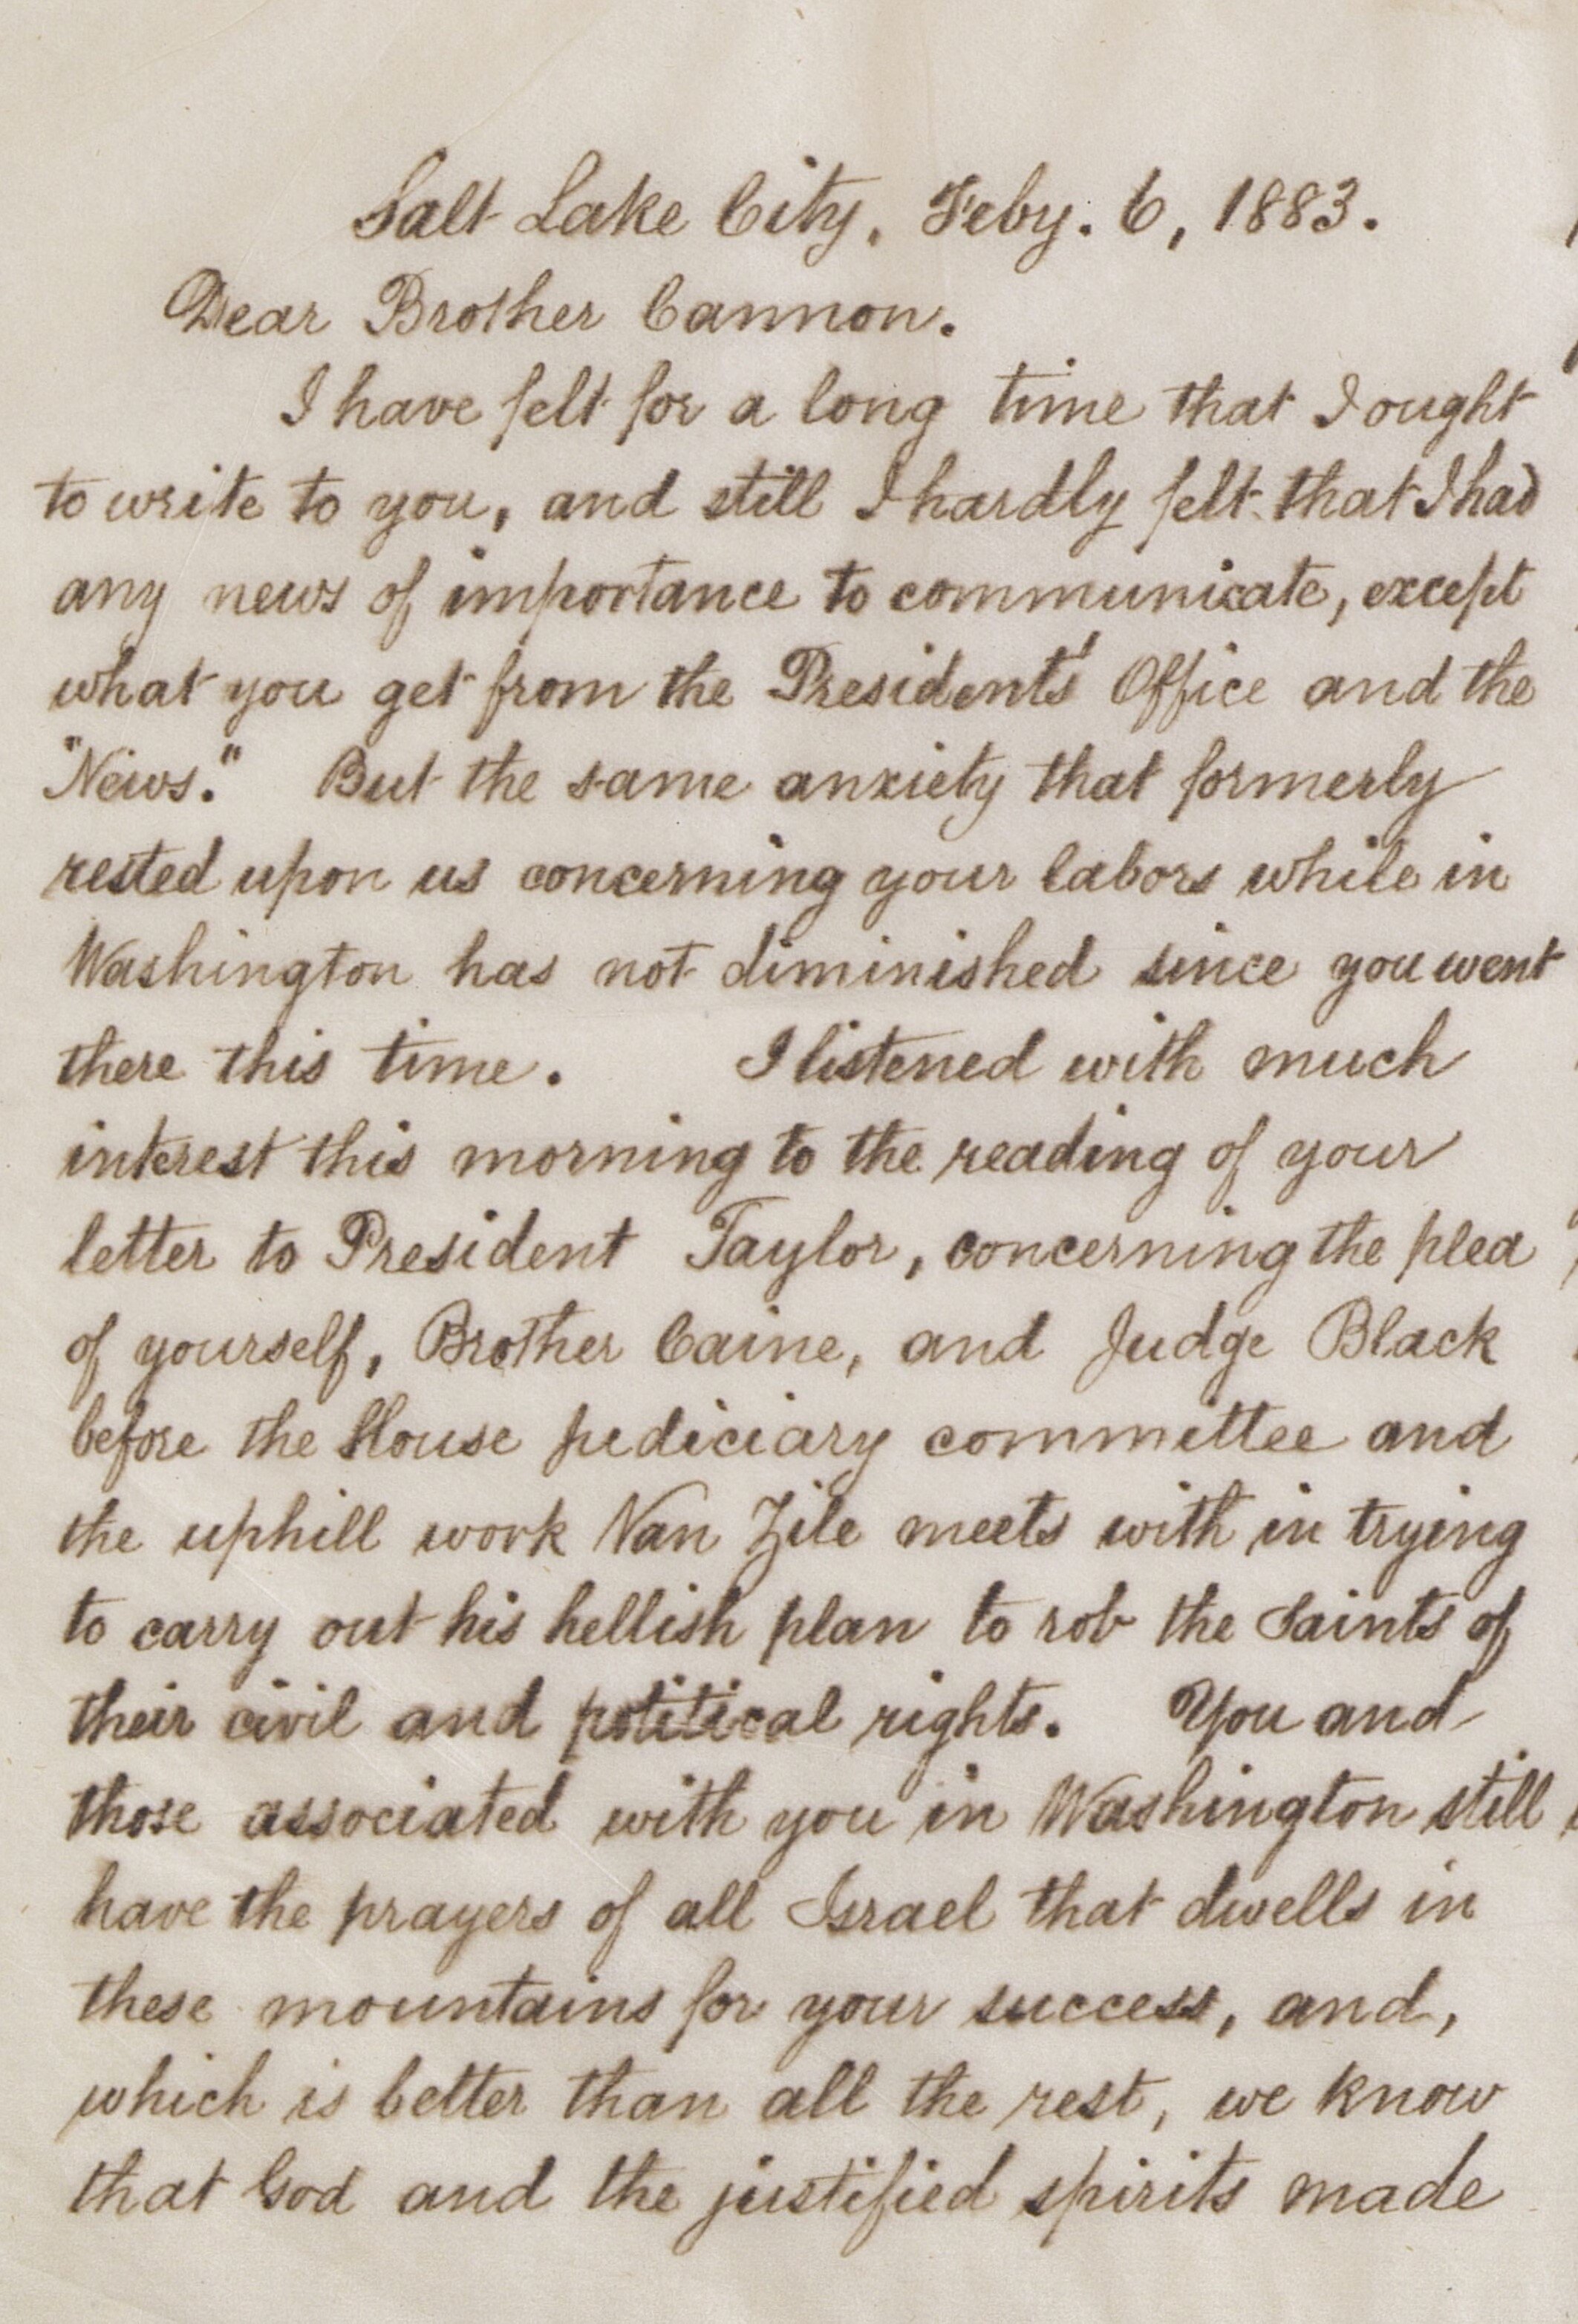 Salt Lake City, Feby. 6, 1883.
Dear Brother Cannon.
I have felt for a long time that I ought
to write to you, and still I hardly felt that I had
any news of importance to communicate, except
what you get from the President's Office and the
"News." But the same anxiety that formerly
rested upon us concerning your labors while in
Washington has not diminished since you went
there this time. I listened with much
interest this morning to the reading of your
letter to President Taylor, concerning the plea
of yourself, Brother Caine, and Judge Black
before the House judiciary committee and
the uphill work Van Zile meets with in trying
to carry out his hellish plan to rob the Saints of
their civil and political rights. You and
those associated with you in Washington still
have the prayers of all Israel that dwells in
these mountains for your success, and,
which is better than all the rest, we know
that God and the justified spirits made